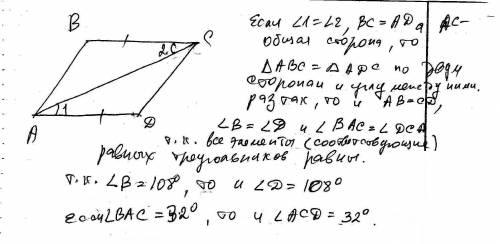 Если ∠1=∠2, BC = AD, а AC-
общая сторона, то
△ABC = △ADC по двум
сторонам и углу между ними.
раз так, то и AB=CD,
∠B = ∠D и ∠BAC = ∠DCA
т.к. все элементы (соответствующие)
равных треугольников равны.
т.к. ∠B = 108°, то и ∠D = 108°
если ∠BAC = 32°, то и ∠ACD = 32°.
B
C
2
1
A
D